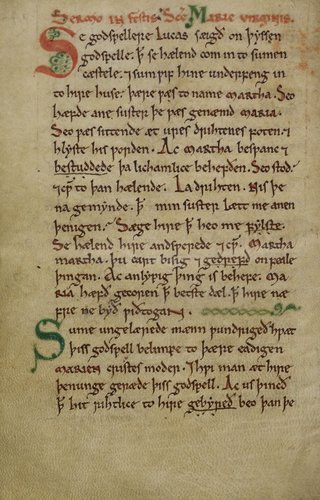 Sermo in festis Scē Marie uirginis.
Se godspellere Lucas sægð on þyssen
godspelle. þ se hælend com in to sumen
cæstele. ⁊ sum ƿif hine underfeng in
to hire huse. þære ƿæs to name martha. Seo
hæfde ane suster þe ƿæs genæmd maria.
Seo ƿæs sittende æt ures drihtenes foten. ⁊
hlyste his ƿorden. Ac martha besƿanc ⁊
bestuddede þa lichamlice behefden. Seo stod.
⁊ cƿ to þan hælende. La drihten. Nis þe
na gemynde. þ min suster lætt me anen
þenigen. Sæge hire þ heo me fylste.
Se hælend hire andsƿerede ⁊ cƿ. Martha
martha. þu eart bisig ⁊ gedrefd on feale
þingan. Ac anlypig þing is behefe. Ma
ria hæfð gecoren þ betste dæl. þ hire næ
fre ne byð ætbrogan.
Sume ungelærede mænn ƿundrigeð hƿæt
þiss godspell belimpe to þære eadigen
marien cristes moder. ⁊ hƿi man æt hire
þenunge geræde þiss godspell. Ac us þincð
þ hit rihtlice to hire gebyreð beo þan þe